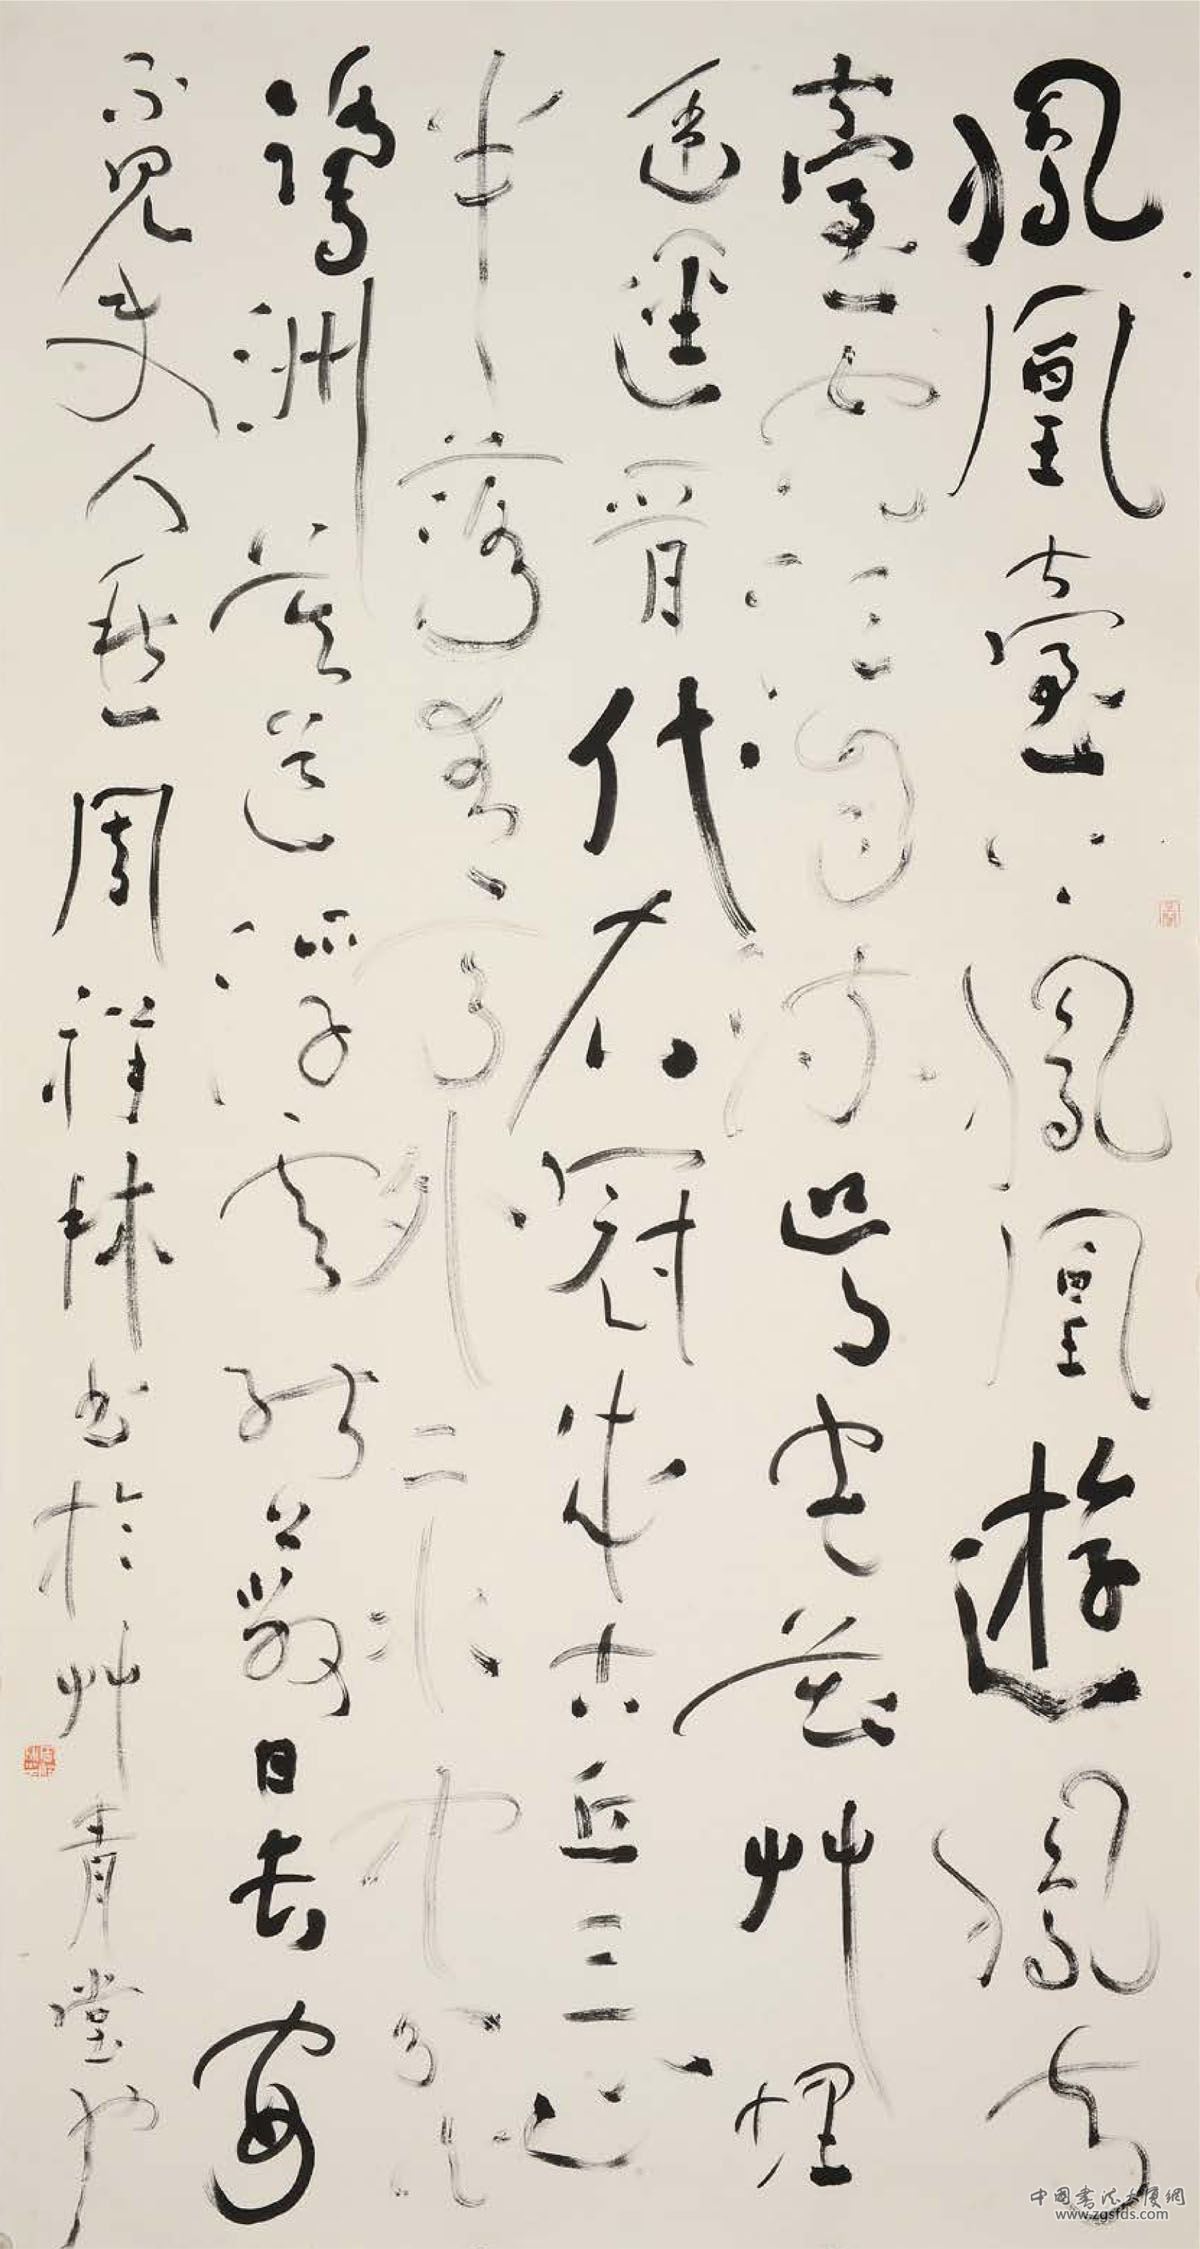 鳳凰臺上鳳凰遊鳳去
臺空江自流吳宮花艸埋
幽逕晉代衣冠成古丘三山
半落青天外二水中分白
鷺洲莫道浮雲能蔽日長安
不見使人愁周祥林書於艸青堂也
中国书法大厦網
www.zgsfds.com